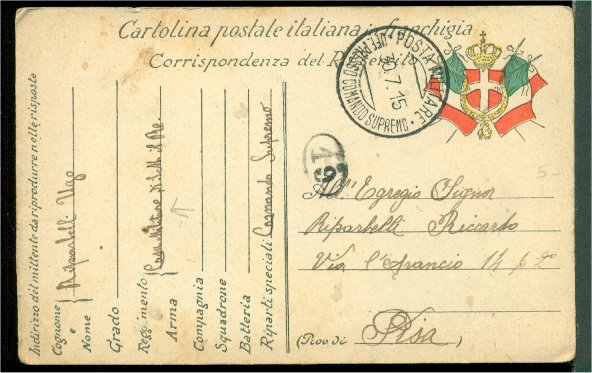 Cartolina postale italiana in franchigia
Corrispondenza del R. Esercito
POSTA MILITARE
UFF. PRESSO COMANDO SUPREMO
7.15
Indirizzo del mittente da riprodurre nelle risposte
Cognome e Nome Riparbelli Ugo
Grado
Reggimento Casa Militare di S. M. il Re
Arma
Compagnia
Squadrone
Batteria
Riparti speciali Comando Supremo
16
5-
All' Egregio Signor
Riparbelli Riccardo
Via 14 p 2º
(Prov. di Pisa)